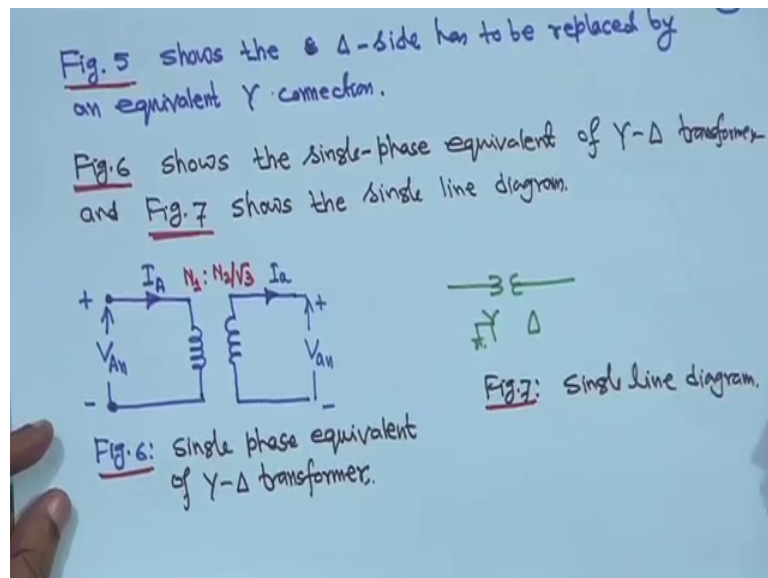 Fig. 5 shows the Δ-side has to be replaced by
an equivalent Y connection.
Fig.6 shows the single-phase equivalent of Y-Δ transformer
and Fig.7 shows the single line diagram.
I_A N_1 : N_2/√3 I_a
+ +
V_An V_an
- -
Y Δ
Fig.7: Single line diagram.
Fig.6: Single phase equivalent
of Y-Δ transformer.